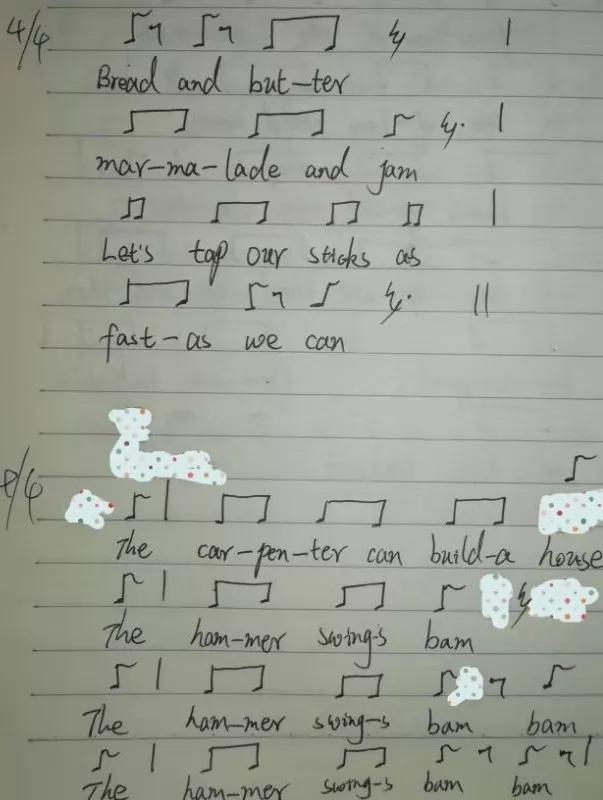 4/4
Bread and but-ter
mar-ma-lade and jam
Let's tap our sticks as
fast-as we can
The car-pen-ter can build-a house
The ham-mer swing-s bam
The ham-mer swing-s bam bam
The ham-mer swing-s bam bam